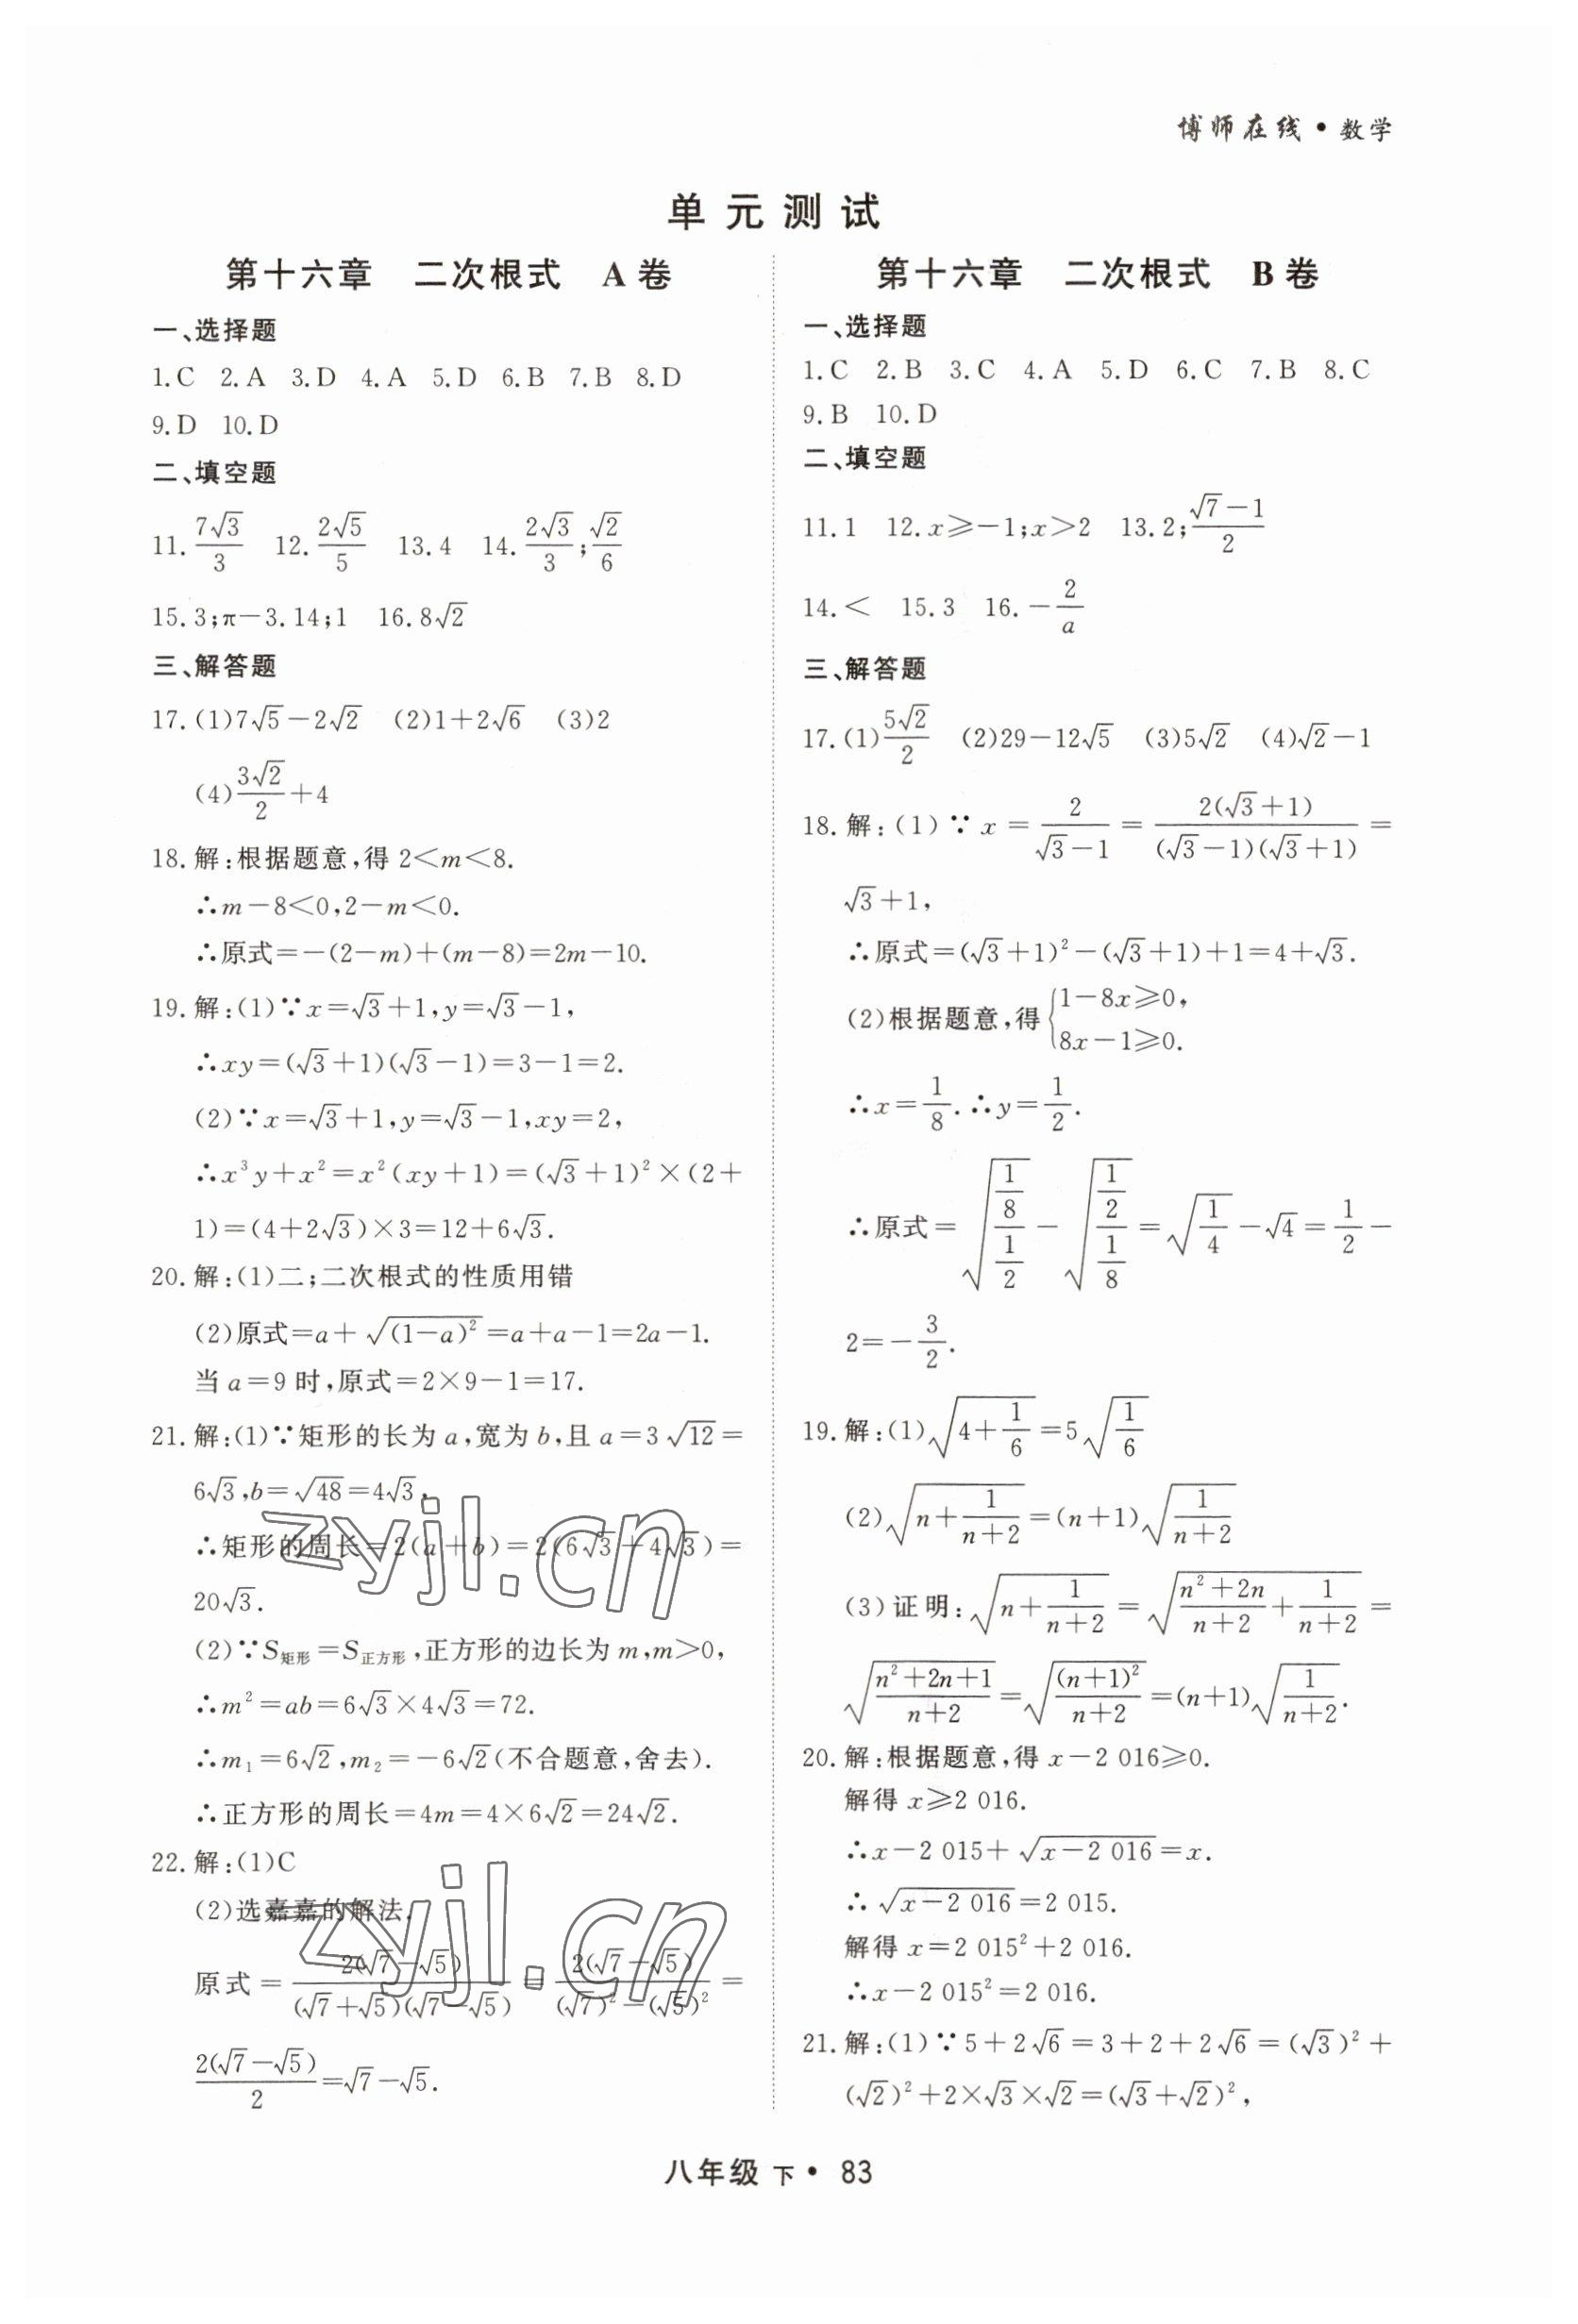 博师在线·数学
单元测试
第十六章 二次根式 A卷
一、选择题
1.C 2.A 3.D 4.A 5.D 6.B 7.B 8.D
9.D 10.D
二、填空题
11.7√3/3 12.2√5/5 13.4 14.2√3/3;√2/6
15.3;π-3.14;1 16.8√2
三、解答题
17.(1)7√5-2√2 (2)1+2√6 (3)2
(4)3√2/2+4
18.解:根据题意,得 2<m<8.
∴m-8<0,2-m<0.
∴原式=-(2-m)+(m-8)=2m-10.
19.解:(1)∵x=√3+1,y=√3-1,
∴xy=(√3+1)(√3-1)=3-1=2.
(2)∵x=√3+1,y=√3-1,xy=2,
∴x³y+x²=x²(xy+1)=(√3+1)²×(2+
1)=(4+2√3)×3=12+6√3.
20.解:(1)二;二次根式的性质用错
(2)原式=a+√((1-a)²)=a+a-1=2a-1.
当 a=9 时,原式=2×9-1=17.
21.解:(1)∵矩形的长为 a,宽为 b,且 a=3√12=
6√3,b=√48=4√3,
∴矩形的周长=2(a+b)=2(6√3+4√3)=
20√3.
(2)∵S矩形=S正方形,正方形的边长为 m,m>0,
∴m²=ab=6√3×4√3=72.
∴m₁=6√2,m₂=-6√2(不合题意,舍去).
∴正方形的周长=4m=4×6√2=24√2.
22.解:(1)C
(2)选嘉嘉的解法.
原式=2(√7-√5)/((√7+√5)(√7-√5))=2(√7-√5)/((√7)²-(√5)²)=
2(√7-√5)/2=√7-√5.
第十六章 二次根式 B卷
一、选择题
1.C 2.B 3.C 4.A 5.D 6.C 7.B 8.C
9.B 10.D
二、填空题
11.1 12.x≥-1;x>2 13.2;(√7-1)/2
14.< 15.3 16.-2/a
三、解答题
17.(1)5√2/2 (2)29-12√5 (3)5√2 (4)√2-1
18.解:(1)∵x=2/(√3-1)=2(√3+1)/((√3-1)(√3+1))=
√3+1,
∴原式=(√3+1)²-(√3+1)+1=4+√3.
(2)根据题意,得{1-8x≥0,
8x-1≥0.
∴x=1/8.∴y=1/2.
∴原式=√((1/8)/(1/2))-√((1/2)/(1/8))=√(1/4)-√4=1/2-
2=-3/2.
19.解:(1)√(4+1/6)=5√(1/6)
(2)√(n+1/(n+2))=(n+1)√(1/(n+2))
(3)证明:√(n+1/(n+2))=√((n²+2n)/(n+2)+1/(n+2))=
√((n²+2n+1)/(n+2))=√((n+1)²/(n+2))=(n+1)√(1/(n+2)).
20.解:根据题意,得 x-2 016≥0.
解得 x≥2 016.
∴x-2 015+√(x-2 016)=x.
∴√(x-2 016)=2 015.
解得 x=2 015²+2 016.
∴x-2 015²=2 016.
21.解:(1)∵5+2√6=3+2+2√6=(√3)²+
(√2)²+2×√3×√2=(√3+√2)²,
zyjl.cn
zyjl.cn
八年级 下·83